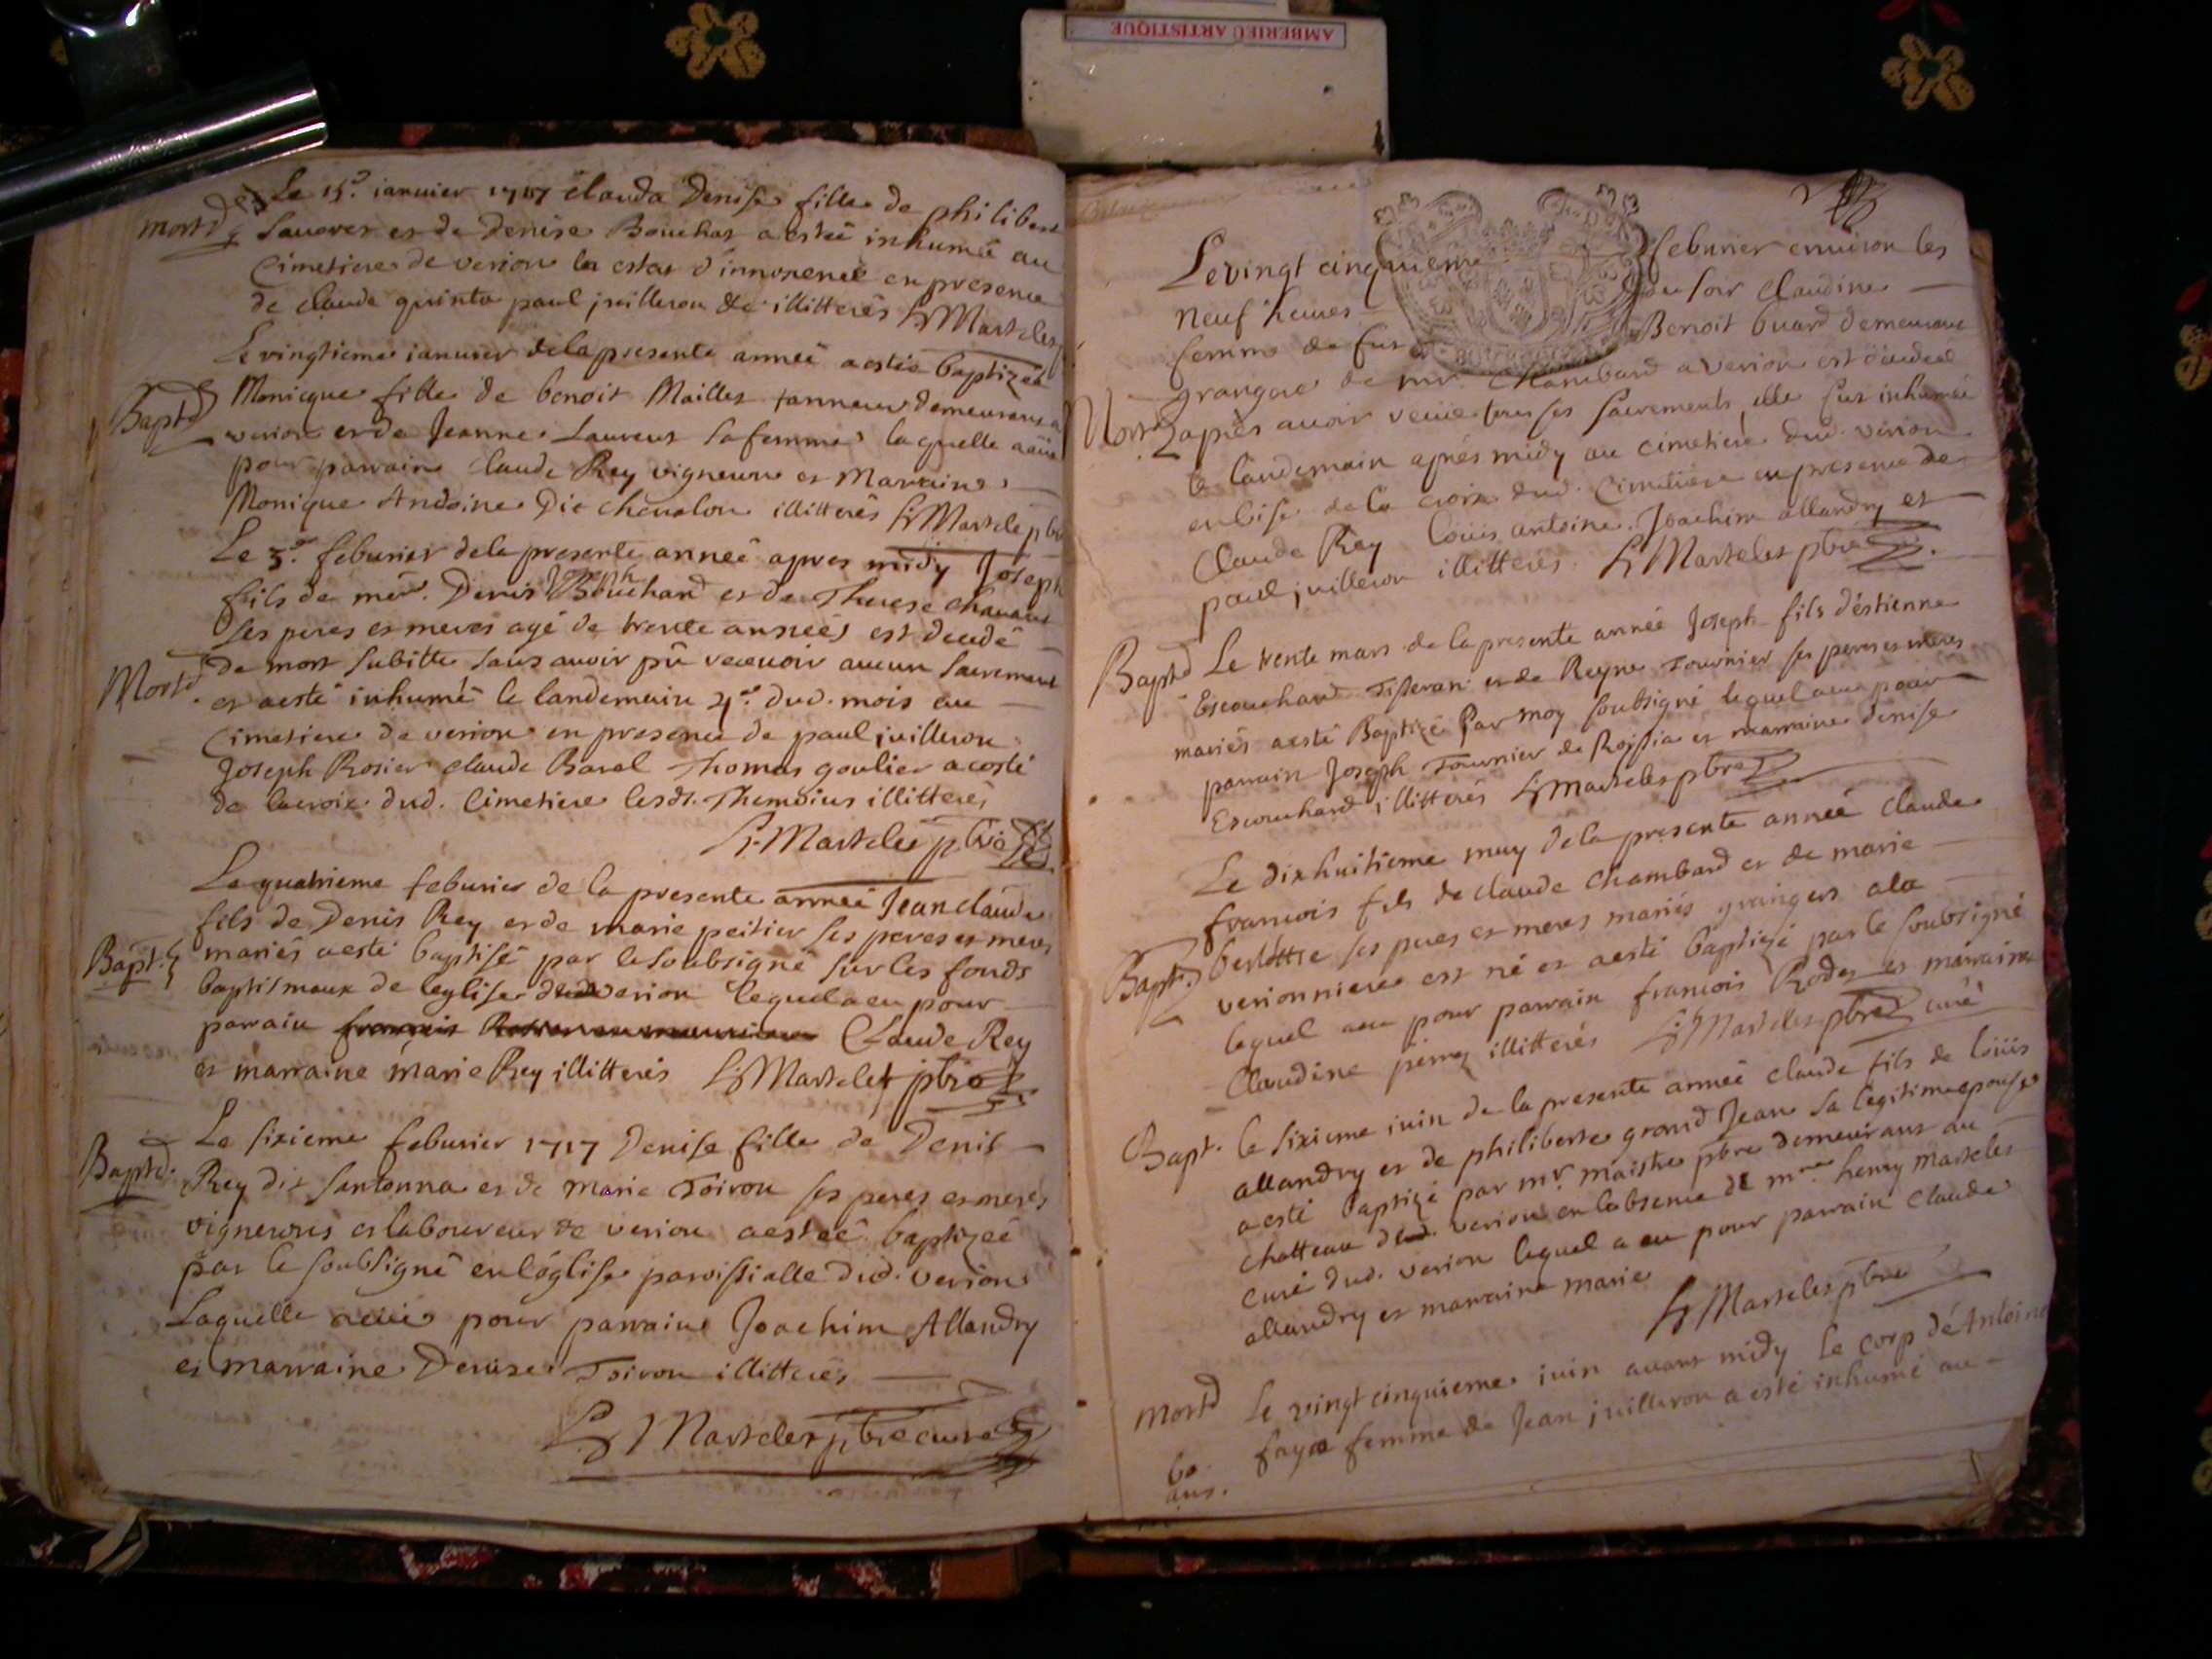 AMBERIEU ARTISTIQUE
Le 15e. ianuier 1717 clauda Denise fille de philibert
mort
et de Denise Bouchar a estée inhumée au
Cimetiere de verion en estat d'innocence en presence
de claude quinta paul juilleron &c illitterés H Martelet
Le vingtieme ianuier de la presente année a estée baptizée
Bapt
Monicque fille de benoit Maillet tanneur demeurant a
verion et de Jeanne Laurent sa femme laquelle a eüe
pour parrain Claude Rey vigneron et Marraine
Monique Andoine Dit chevalon illitterés H Martelet pbre
Le 3e. feburier de la presente année apres midy Joseph
fils de Denis Bouchard et de Therese
ses peres et meres agé de trente années est decedé
de mort subitte sans avoir pû recevoir aucun sacrement
Mort
et a esté inhumé le landemain 4e. dud. mois au
Cimetiere de verion en presence de paul juilleron
Joseph Rosier claude Baral Thomas goulier a costé
de la croix dud. Cimetiere lesdt. Themoins illitterés
H. Martelet pbre
Le quatrieme feburier de la presente année Jean claude
fils de Denis Rey et de marie peitier ses peres et meres
Bapt.
mariés a esté baptisé par le soubsigné sur les fonds
baptismaux de leglise dud verion lequel a eu pour
parrain Claude Rey
et marraine marie Rey illitterés H Martelet pbre
Le sixieme feburier 1717 Denise fille de Denis
Bapt.
Rey dit santonna et de marie Toiron ses peres et meres
vignerons et laboureur de verion a estée baptizée
par le soubsigné en l'église parroissialle dud. verion
Laquelle a eüe pour parraine Joachim Allandry
et marraine Denise Toiron illitterés
H Martelet pbre curé
Le vingt cinquieme feburier environ les
neuf heures du soir Claudine
femme de fut Benoit buard demeurant
grangere de mr. Chambard a verion est décedée
Mort
apres avoir receüe tous ses sacrements elle fut inhumée
le landemain aprés midy au cimetiere dud. verion
en bise de la croix dud. Cimetiere en presence de
Claude Rey loüis antoine Joachim allandry et
paul juilleron illitterés. H Martelet pbre
Bapt
Le trente mars de la presente année Joseph fils d'éstienne
Escouchard Tisseran et de Reyne Tournier ses peres et meres
mariés a esté Baptizé Par moy soubsigné lequel a eu pour
parrain Joseph Tournier de Roissia et marraine denise
Escouchard illitterés H martelet pbre
Le dixhuitieme may de la presente année claude
francois fils de claude chambard et de marie
Bapt.
ses peres et meres mariés grangers a la
verionniere est né et a esté baptizé par le soubsigné
lequel a eu pour parrain francois Rodet et marraine
Claudine illitterés H Martelet pbre curé
Bapt.
le sixieme iuin de la presente année claude fils de loüis
allandry et de philiberte grand Jean sa legitime epouse
a esté baptizé par mr. maistre pbre demeurant au
chatteau dud. verion en l'absence de mre henry martelet
curé dud. verion lequel a eu pour parrain claude
allandry et marraine marie
H Martelet pbre
mort
Le vingt cinquieme iuin avant midy le corp dé Antoine
faya femme de Jean juilleron a esté inhumé au
60
ans.